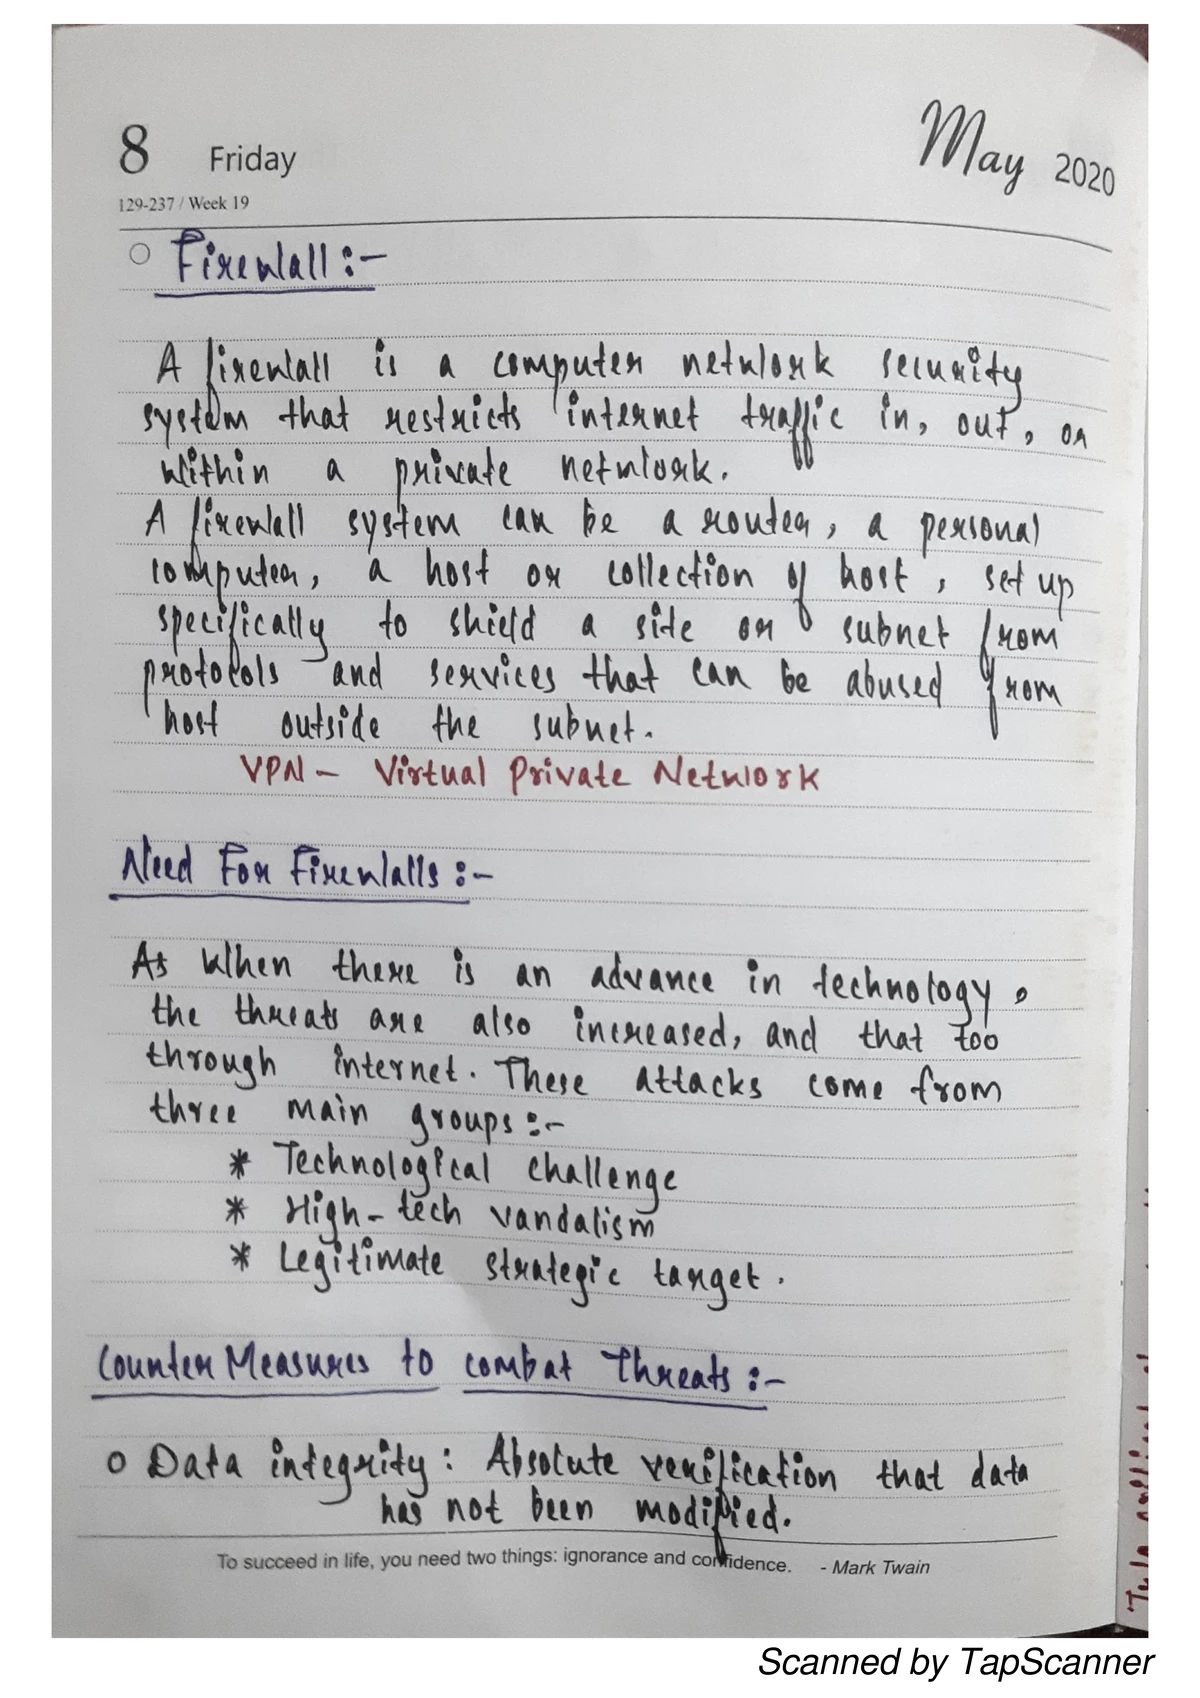 8 Friday
May 2020
129-237 / Week 19
Firewall :-
A firewall is a computer network security
system that restricts internet traffic in, out, or
within a private network.
A firewall system can be a router, a personal
computer, a host or collection of host, set up
specifically to shield a site or subnet from
protocols and services that can be abused from
host outside the subnet.
VPN - Virtual Private Network
Need For Firewalls :-
As When there is an advance in technology,
the threats are also increased, and that too
through internet. These attacks come from
three main groups :-
* Technological challenge
* High-tech vandalism
* Legitimate strategic target.
Counter Measures to combat Threats :-
o Data integrity : Absolute verification that data
has not been modified.
To succeed in life, you need two things: ignorance and confidence. - Mark Twain
Scanned by TapScanner